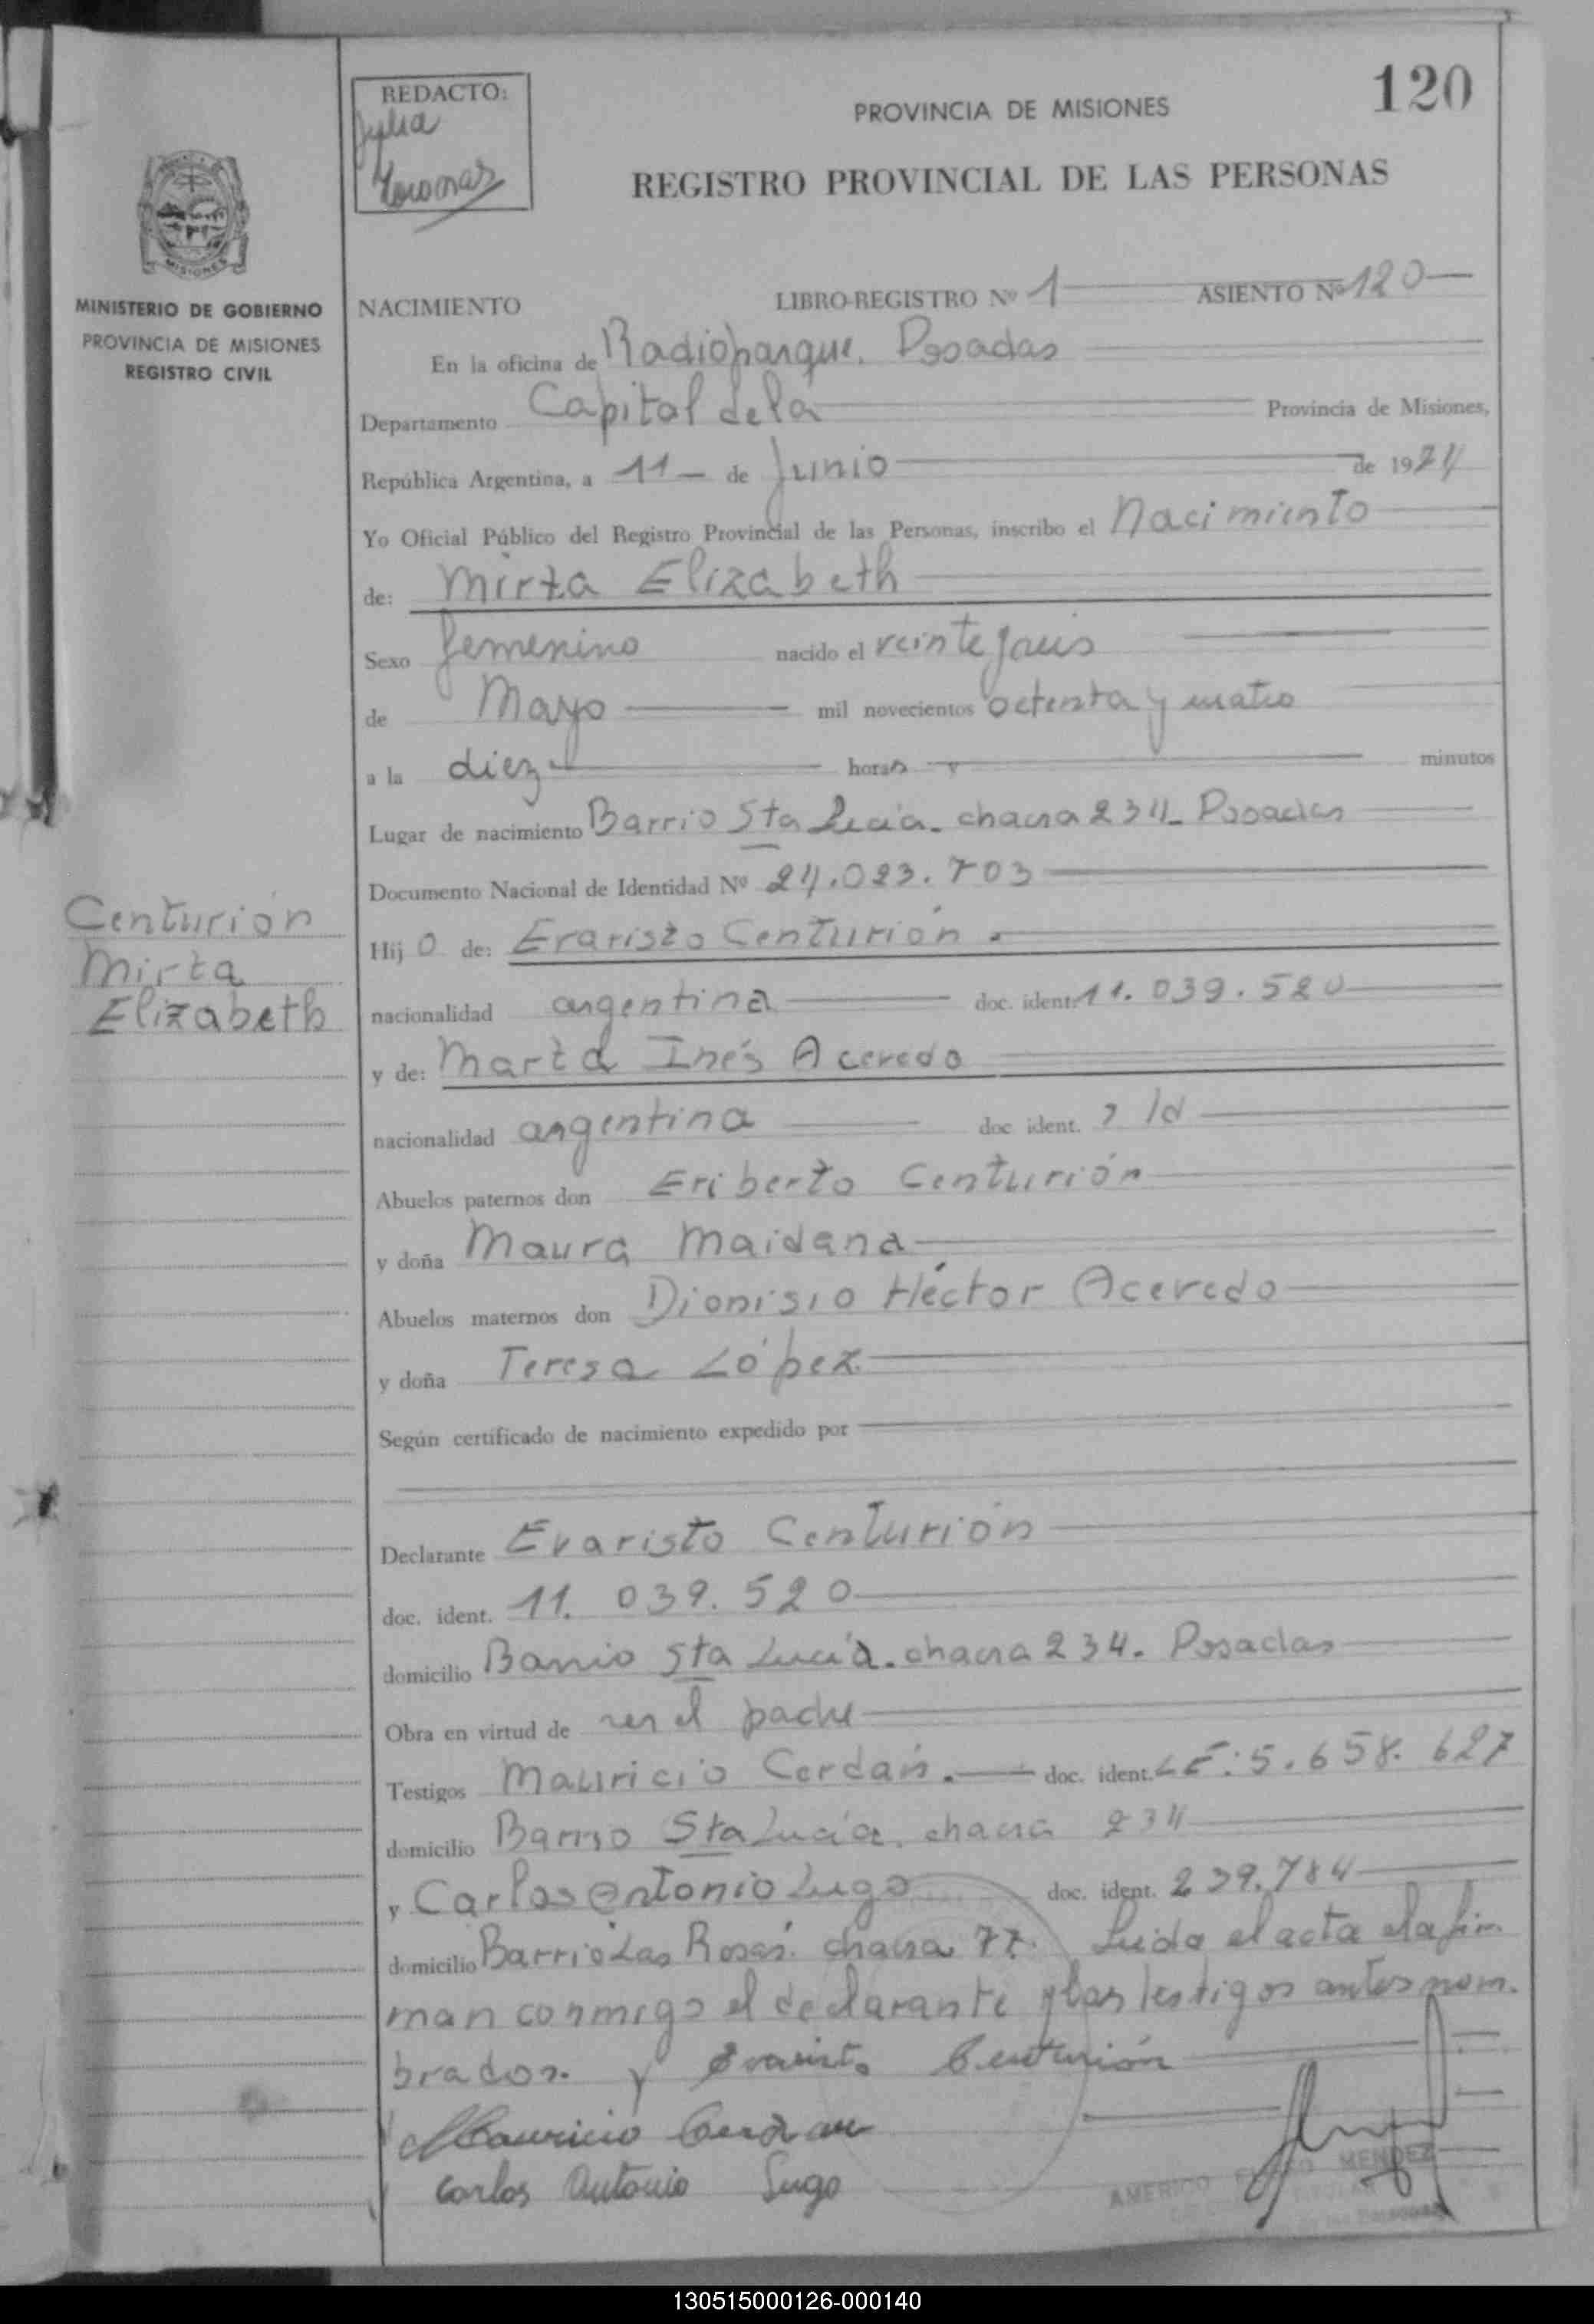 120
REDACTO:
Julia
PROVINCIA DE MISIONES
REGISTRO PROVINCIAL DE LAS PERSONAS
MISIONES
MINISTERIO DE GOBIERNO
PROVINCIA DE MISIONES
REGISTRO CIVIL
NACIMIENTO LIBRO-REGISTRO Nº 1 ASIENTO Nº 120
En la oficina de Radioparque. Posadas
Departamento Capital de la Provincia de Misiones,
República Argentina, a 11 de Junio de 1984
Yo Oficial Público del Registro Provincial de las Personas, inscribo el Nacimiento
de: Mirta Elizabeth
Sexo femenino nacido el veinte
de Mayo mil novecientos octenta y cuatro
a la diez horas y minutos
Lugar de nacimiento Barrio Sta Lucía. chacra 234. Posadas
Documento Nacional de Identidad Nº 24.023.703
Centurión
Mirta
Elizabeth
Hij o de: Evaristo Centurión.
nacionalidad argentina doc. ident. 11.039.520
y de: Marta Inés Acevedo
nacionalidad argentina doc ident.
Abuelos paternos don Eriberto Centurión
y doña Maura Maidana
Abuelos maternos don Dionisio Héctor Acevedo
y doña Teresa López
Según certificado de nacimiento expedido por
Declarante Evaristo Centurión
doc. ident. 11.039.520
domicilio Barrio Sta Lucía. chacra 234. Posadas
Obra en virtud de ser el padre
Testigos Mauricio Cerdán. doc. ident. LE: 5.658.627
domicilio Barrio Sta Lucía. chacra 234
y Carlos Antonio Lugo doc. ident. 239.784
domicilio Barrio Las Rosas. chacra 77. Leida el acta la fir
man conmigo el declarante y los testigos antes nom.
brados. y Evaristo Centurión
Mauricio Cerdan
Carlos Antonio Lugo
AMERICO MENDEZ
130515000126-000140